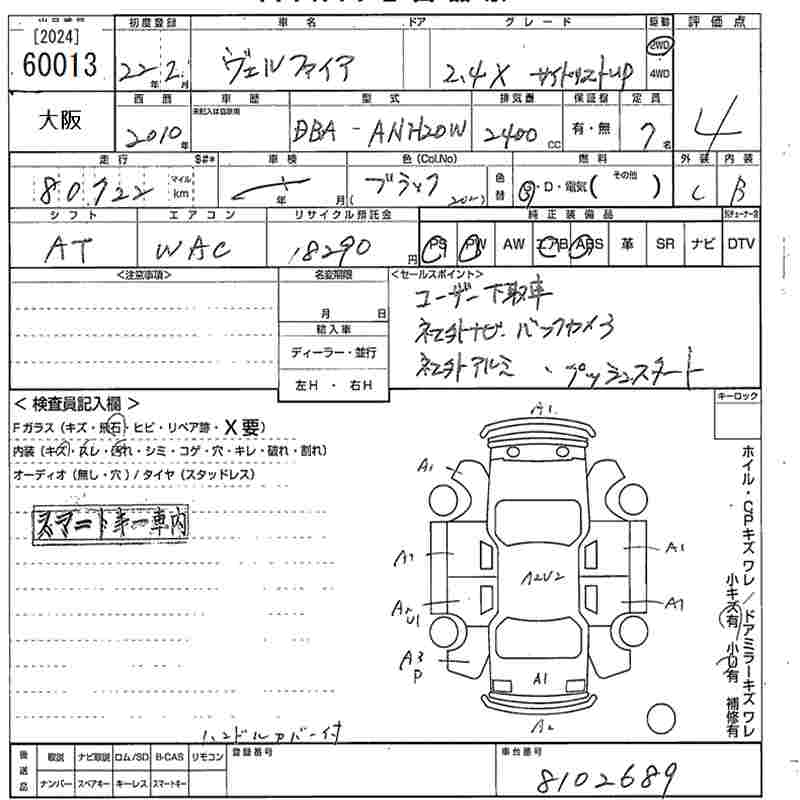 [2024]
60013
初度登録 車名 ドア グレード 駆動 評価点
22年2月 ヴェルファイア 2.4X サイドリフトUP 2WD 4WD 4
大阪
西暦 車歴 型式 排気量 保証書 定員
未記入は自家用
2010年 DBA-ANH20W 2400CC 有・無 7名
走行 S#* 車検 色(Col.No) 燃料 外装 内装
80722 マイル km 年 月 ブラック (202) 色替 G・D・電気( その他 ) C B
シフト エアコン リサイクル預託金 純正装備品
AT WAC 18290円 PS PW AW エアB ABS 革 SR ナビ DTV
<注意事項> 名変期限 <セールスポイント>
月 日
輸入車
ディーラー・並行
左H ・ 右H
ユーザー下取車
社外ナビ・バックカメラ
社外アルミ、プッシュスタート
< 検査員記入欄 > キーロック
Fガラス(キズ・飛石・ヒビ・リペア跡・X要)
内装(キズ・スレ・汚れ・シミ・コゲ・穴・キレ・破れ・割れ)
オーディオ(無し・穴)/タイヤ(スタッドレス)
スマートキー車内
A1
A1
A1 A1
A2U2
A2U1 A1
A3P
A1
A2
ホイル・CPキズ ワレ/ドアミラーキズ ワレ
小キズ有/小U有 補修有
ハンドルカバー付
後送品 取説 ナビ取説 ロム/SD B-CAS リモコン 登録番号 車台番号
ナンバー スペアキー キーレス スマートキー
8102689